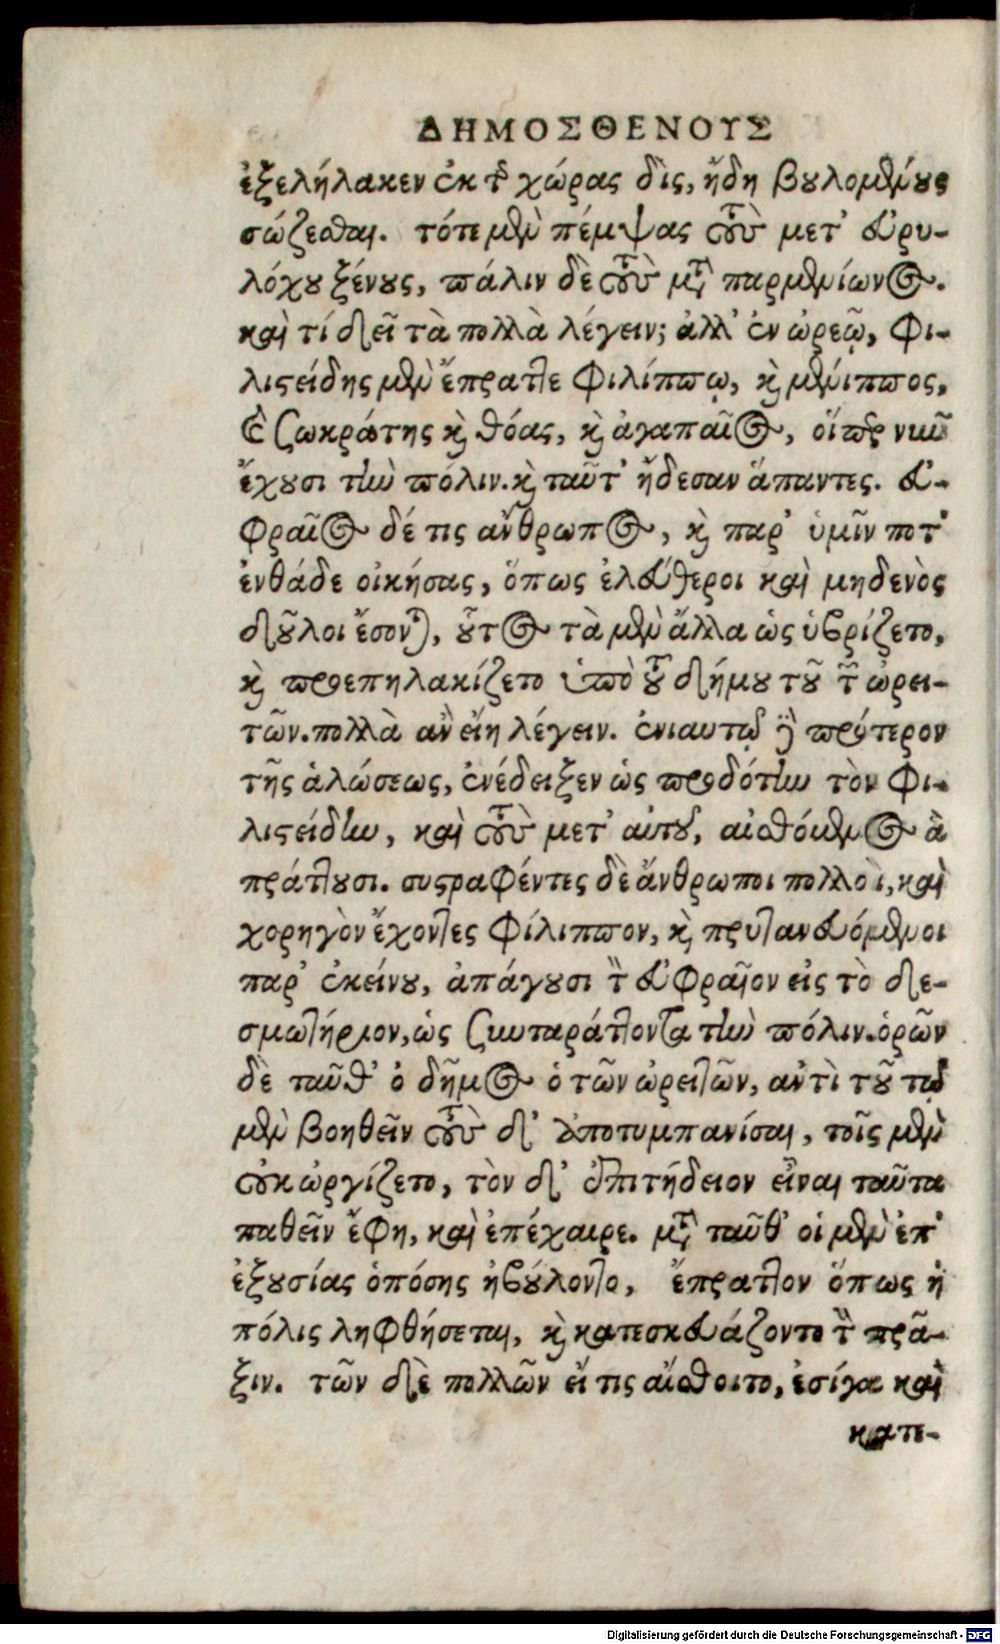 ΔΗΜΟΣΘΕΝΟΥΣ
ἐξελήλακεν ἐκ τῆς χώρας δὶς, ἤδη βουλομένους
σώζεσθαι. τότε μὲν πέμψας τοὺς μετ' εὐρυ-
λόχου ξένους, πάλιν δὲ τοὺς μετὰ παρμενίωνος.
καὶ τί δεῖ τὰ πολλὰ λέγειν; ἀλλ' ἐν ὠρεῷ, Φι-
λιστείδης μὲν ἔπραττε Φιλίππῳ, καὶ μένιππος,
καὶ σωκράτης καὶ θόας, καὶ ἀγαπαῖος, οἵπερ νῦν
ἔχουσι τὴν πόλιν. καὶ ταῦτ' ἤδεσαν ἅπαντες. εὐ-
φραῖος δέ τις ἄνθρωπος, καὶ παρ' ὑμῖν ποτ'
ἐνθάδε οἰκήσας, ὅπως ἐλεύθεροι καὶ μηδενὸς
δοῦλοι ἔσονται, οὗτος τὰ μὲν ἄλλα ὡς ὑβρίζετο,
καὶ προεπηλακίζετο ὑπὸ τοῦ δήμου τοῦ τῶν ὠρει-
τῶν. πολλὰ ἂν εἴη λέγειν. ἐνιαυτῷ γὰρ πρότερον
τῆς ἁλώσεως, ἐνέδειξεν ὡς προδότην τὸν Φι-
λιστείδην, καὶ τοὺς μετ' αὐτοῦ, αἰσθόμενος ἃ
πράττουσι. συστραφέντες δὲ ἄνθρωποι πολλοὶ, καὶ
χορηγὸν ἔχοντες Φίλιππον, καὶ πρυτανευόμενοι
παρ' ἐκείνου, ἀπάγουσι τὸν εὐφραῖον εἰς τὸ δε-
σμωτήριον, ὡς συνταράττοντα τὴν πόλιν. ὁρῶν
δὲ ταῦθ' ὁ δῆμος ὁ τῶν ὠρειτῶν, ἀντὶ τοῦ τῷ
μὲν βοηθεῖν τοὺς δ' ἀποτυμπανίσαι, τοῖς μὲν
οὐκ ὠργίζετο, τὸν δ' ἐπιτήδειον εἶναι ταῦτα
παθεῖν ἔφη, καὶ ἐπέχαιρε. μετὰ ταῦθ' οἱ μὲν ἐπ'
ἐξουσίας ὁπόσης ἠβούλοντο, ἔπραττον ὅπως ἡ
πόλις ληφθήσεται, καὶ κατεσκευάζοντο τὴν πρᾶ-
ξιν. τῶν δὲ πολλῶν εἴ τις αἴσθοιτο, ἐσίγα καὶ
κατε-
Digitalisierung gefördert durch die Deutsche Forschungsgemeinschaft - DFG